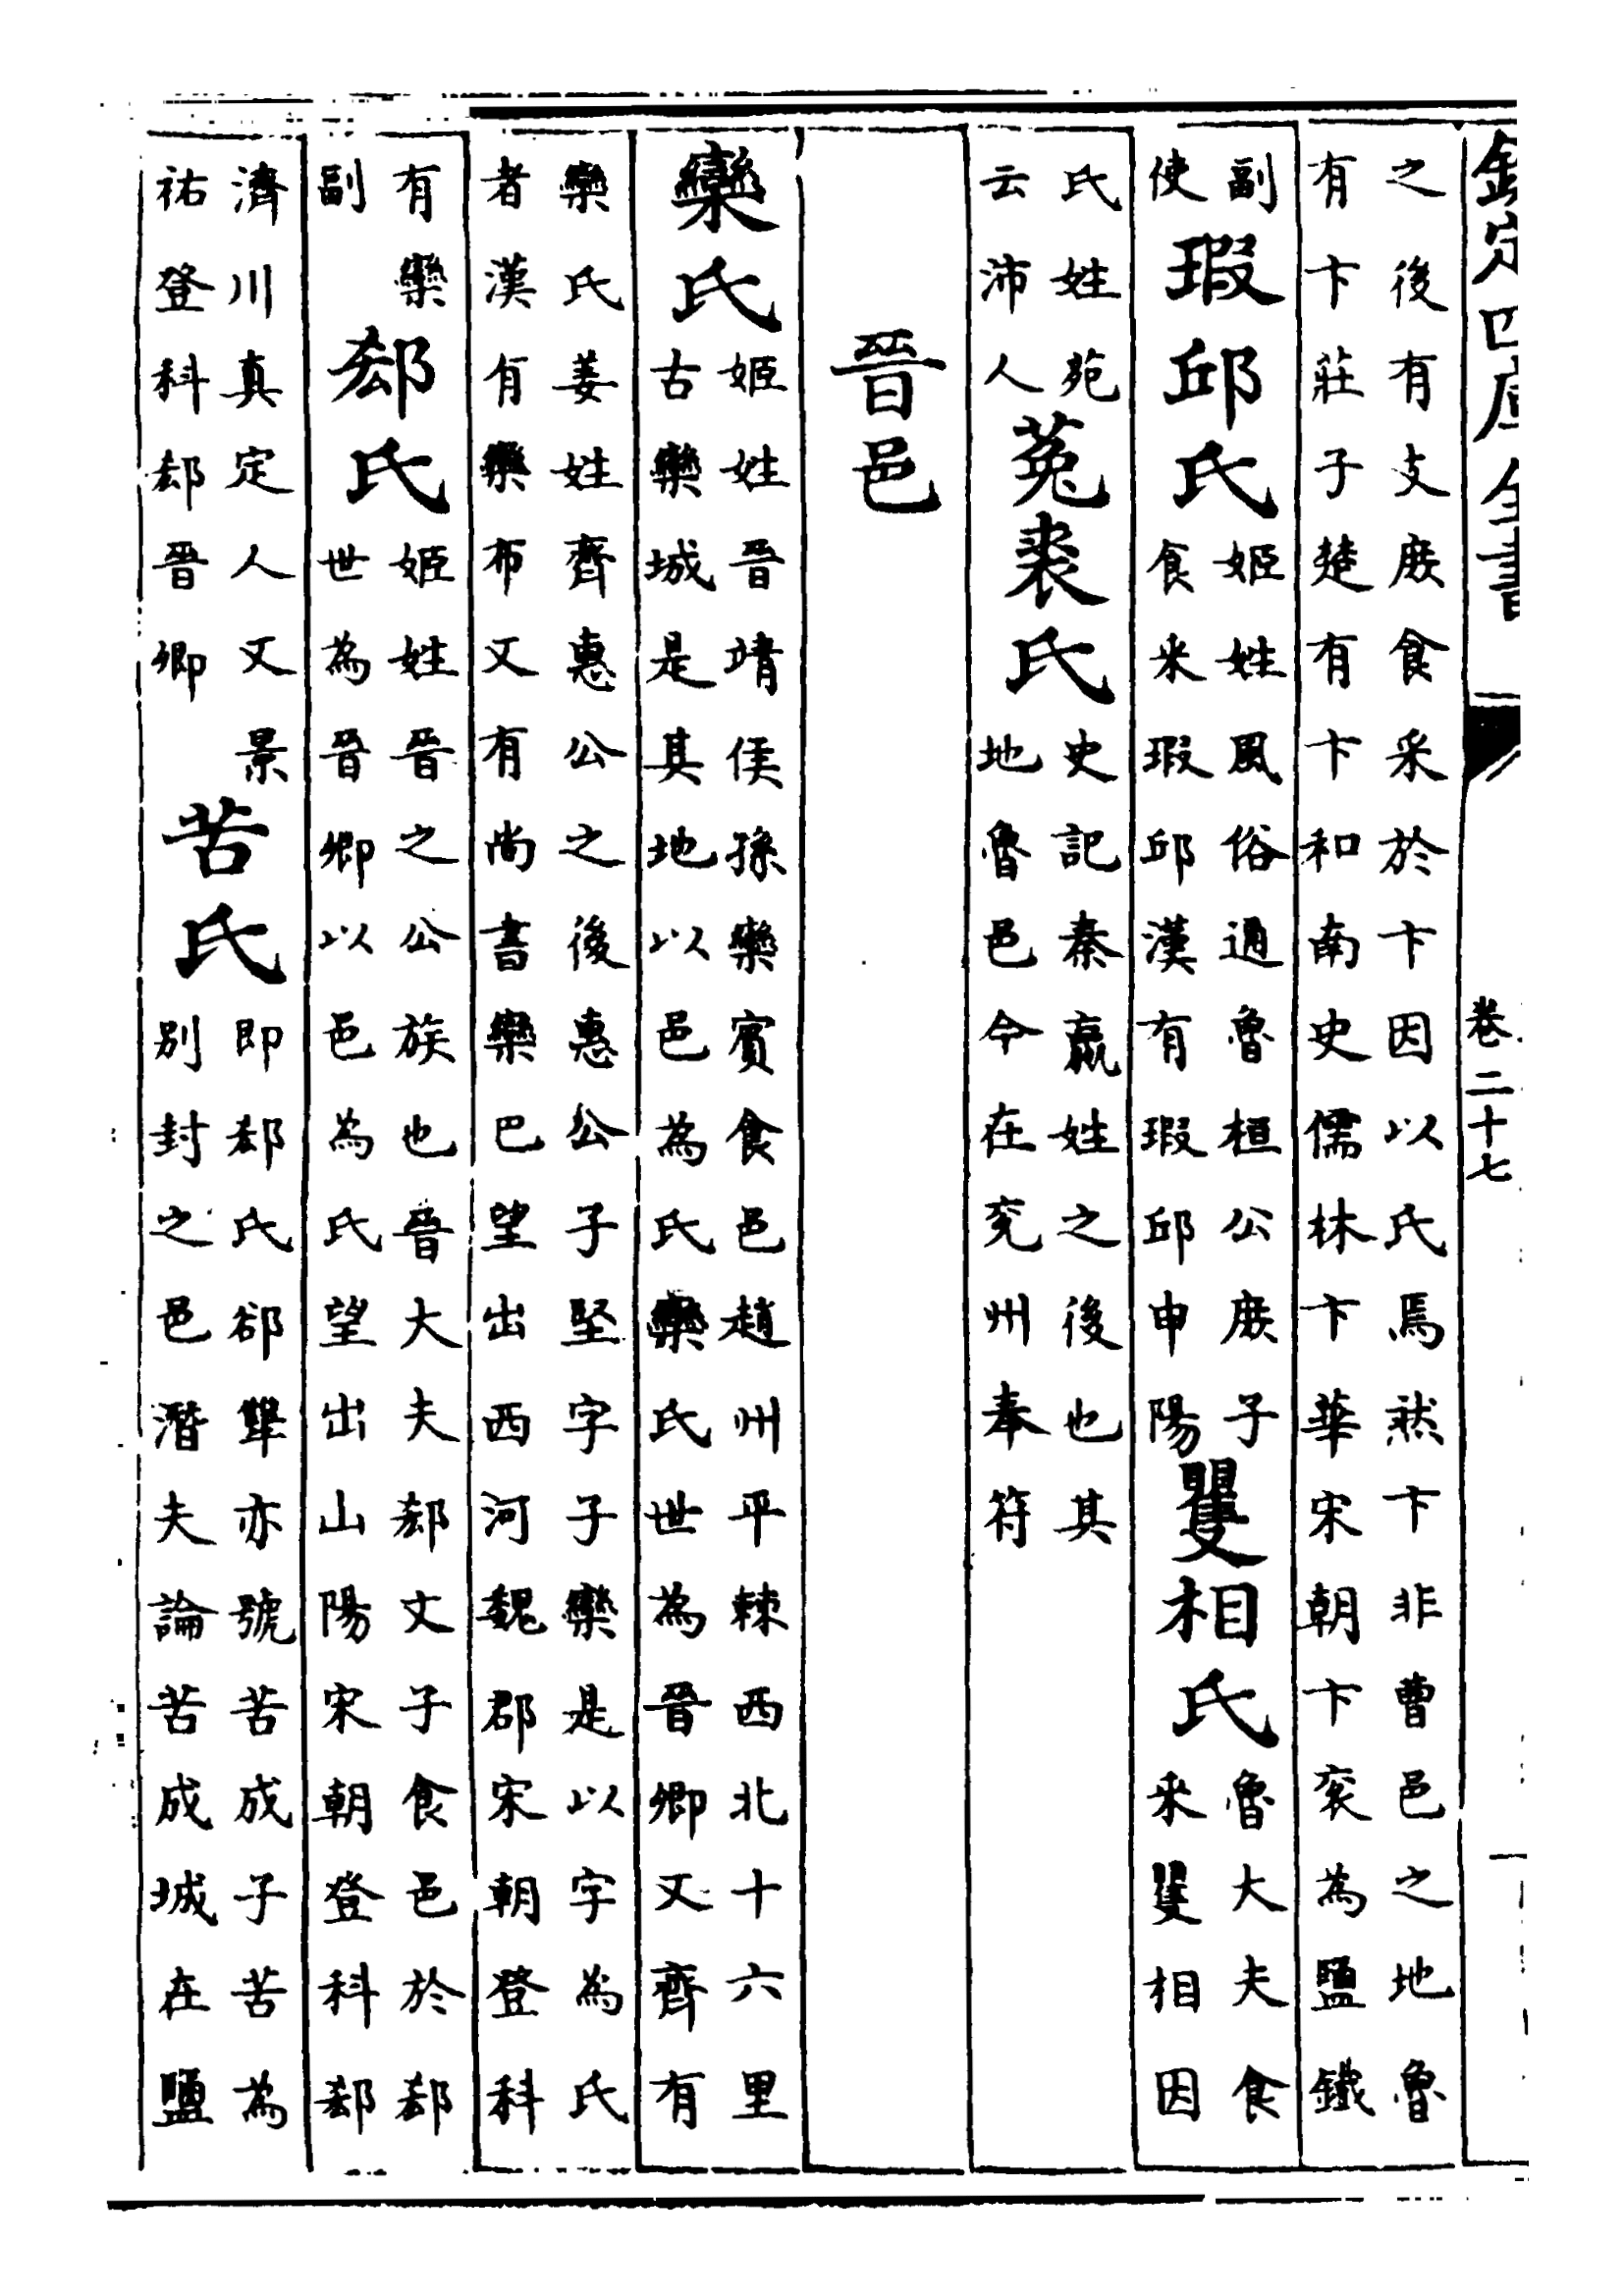 欽定四庫全書 卷二十七
之後有支庶食采於卞因以氏焉然卞非曹邑之地魯
有卞莊子楚有卞和南史儒林卞華宋朝卞衮為鹽鐵
副使瑕邱氏姬姓風俗通魯桓公庶子食采瑕邱漢有瑕邱申陽矍相氏魯大夫食采矍相因
氏姓苑云沛人菟裘氏史記秦嬴姓之後也其地魯邑今在兖州奉符
晉邑
欒氏姬姓晉靖侯孫欒賓食邑趙州平棘西北十六里古欒城是其地以邑為氏欒氏世為晉卿又齊有
欒氏姜姓齊惠公之後惠公子堅字子欒是以字為氏
者漢有欒布又有尚書欒巴望出西河魏郡宋朝登科
有欒副郄氏姬姓晉之公族也晉大夫郄文子食邑於郄世為晉卿以邑為氏望出山陽宋朝登科郄
濟川真定人又景祐登科郄晉卿苦氏即郄氏郤犨亦號苦成子苦為別封之邑潛夫論苦成城在鹽